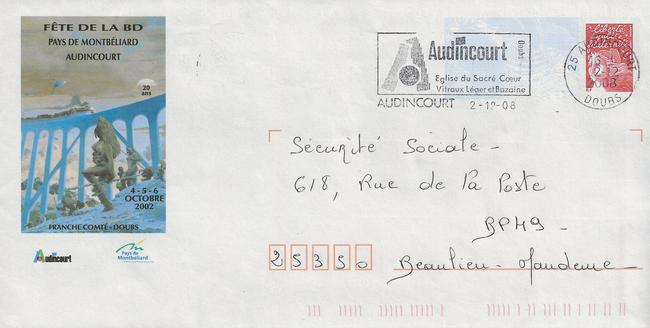 FÊTE DE LA BD
PAYS DE MONTBÉLIARD
AUDINCOURT
20
ans
4 - 5 - 6
OCTOBRE
2002
FRANCHE COMTÉ - DOUBS
Audincourt
Pays de
Montbéliard
Audincourt
Doubs
Eglise du Sacré Cœur
Vitraux Léger et Bazaine
AUDINCOURT 2-12-08
25 AUDINCOURT
2-12
2008
DOUBS
Sécurité Sociale -
618, Rue de La Poste
BP 49 -
25350 Beaulieu - Mandeure -